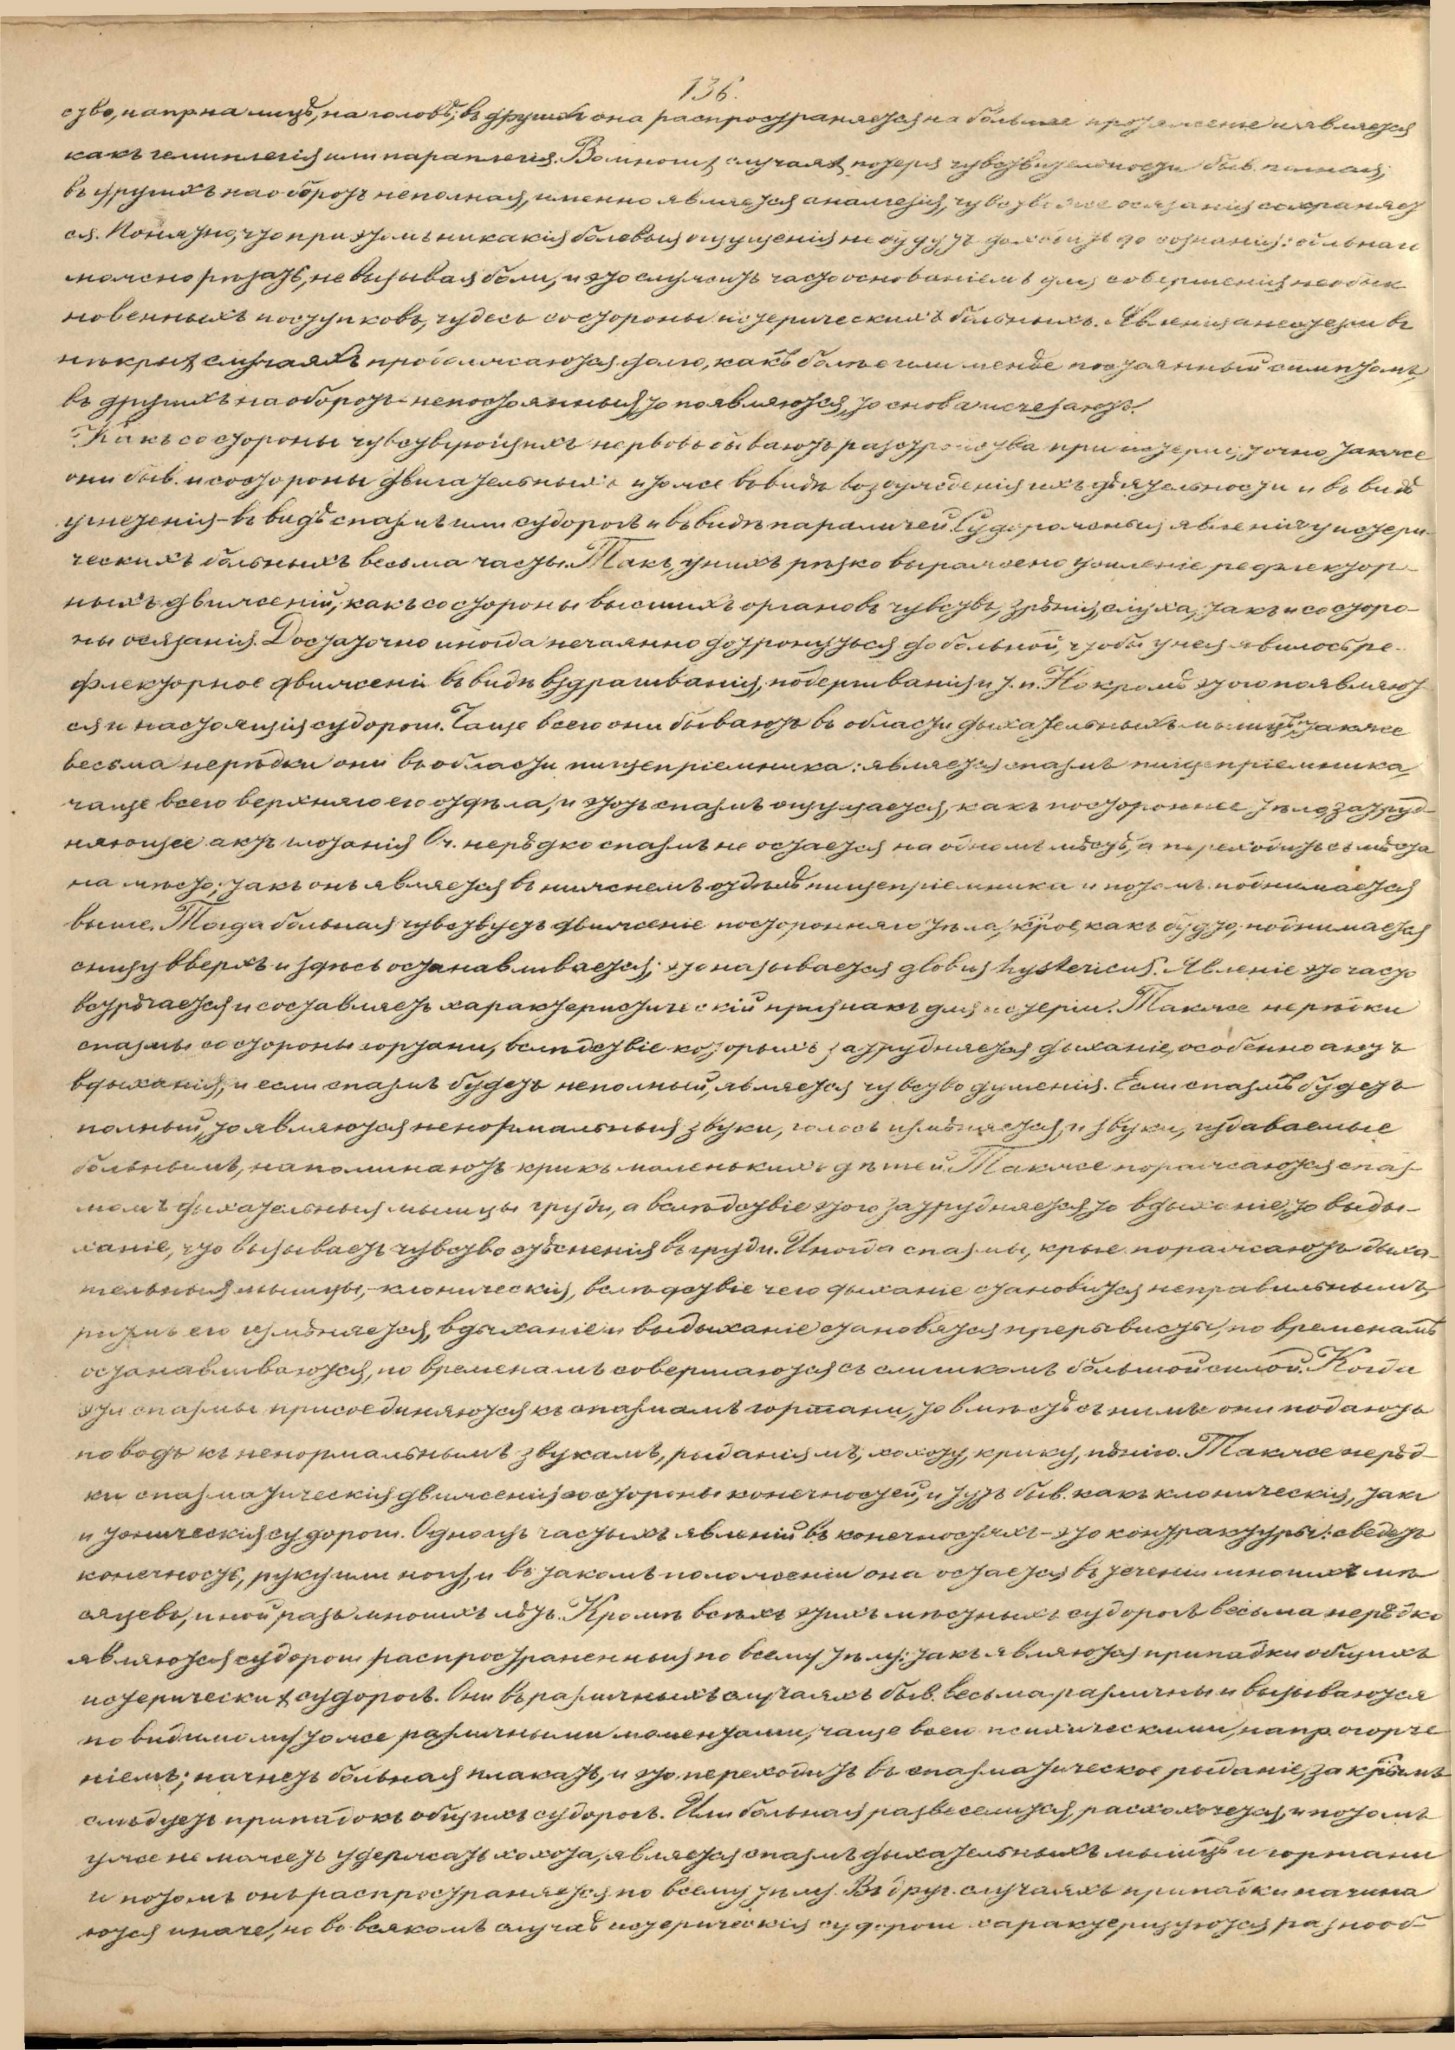 136.
ство, напр на лицѣ, на головѣ; въ другихъ она распространяется на большее протяженіе и является
какъ гемиплегія или параплегія. Во многих случаях потеря чувствительности быв. полная;
въ другихъ наоборотъ неполная, именно является аналгезія, чувство же осязанія сохраняет
ся. Понятно, что при этомъ никакія болевыя ощущенія не будутъ доходить до сознанія: больная
можно рѣзать, не вызывая боли, и это служитъ часто основаніемъ для совершенія необык
новенныхъ поступковъ, чудесъ со стороны истерическихъ больныхъ. Явленія анестезіи въ
нѣкрых случаяхъ продолжаются долго, какъ болѣе или менѣе постоянный симптомъ,
въ другихъ наоборотъ - непостоянныя, то появляются, то снова исчезаютъ.
Какъ со стороны чувствующихъ нервовъ бываютъ разстройства при истеріи, точно также
они быв. и со стороны двигательныхъ и тоже въ видѣ возбужденія ихъ дѣятельности и въ видѣ
угнетенія - въ видѣ спазмъ или судорогъ и въ видѣ параличей. Судорожныя явленія у истери
ческихъ больныхъ весьма часты. Такъ, у нихъ рѣзко выражено усиленіе рефлектор-
ныхъ движеній, какъ со стороны высшихъ органовъ чувствъ, зрѣнія, слуха, такъ и со сторо-
ны осязанія. Достаточно иногда нечаянно дотронуться до больной, чтобы у нея явилось ре-
флекторное движеніе въ видѣ вздрагиванія, подергиванія и т. п. Но кромѣ этого появляют
ся и настоящія судороги. Чаще всего они бываютъ въ области дыхательныхъ мышцъ; также
весьма нерѣдки они въ области пищепріемника: является спазмъ пищепріемника,
чаще всего верхняго его отдѣла, и этотъ спазмъ ощущается, какъ постороннее тѣло, затруд-
няющее актъ глотанія. Оч. нерѣдко спазмъ не остается на одномъ мѣстѣ, а переходитъ съ мѣста
на мѣсто; такъ онъ является въ нижнемъ отдѣлѣ пищепріемника и потомъ поднимается
выше. Тогда больная чувствуетъ движеніе посторонняго тѣла, крое, какъ будто, поднимается
снизу вверхъ и здѣсь останавливается; это называется globus hystericus. Явленіе это часто
встрѣчается и составляетъ характеристическій признакъ для истеріи. Также нерѣдки
спазмы со стороны гортани, вслѣдствіе которыхъ затрудняется дыханіе, особенно актъ
вдыханія, и если спазмъ будетъ неполный, является чувство душенія. Если спазмъ будетъ
полный, то являются ненормальныя звуки, голосъ измѣняется, и звуки, издаваемые
больнымъ, напоминаютъ крикъ маленькихъ дѣтей. Также поражаются спаз-
момъ дыхательныя мышцы груди, а вслѣдствіе этого затрудняется то вдыханіе, то выды-
ханіе, что вызываетъ чувство стѣсненія въ груди. Иногда спазмы, крые поражаютъ дыха-
тельныя мышцы, - клоническія, вслѣдствіе чего дыханіе становится неправильнымъ,
ритмъ его измѣняется, вдыханіе и выдыханіе становятся прерывисты, по временамъ
останавливаются, по временамъ совершаются съ слишкомъ большой силой. Когда
эти спазмы присоединяются къ спазмамъ гортани, то вмѣстѣ съ нимъ они подаютъ
поводъ къ ненормальнымъ звукамъ, рыданіямъ, хохоту, крику, пѣнію. Также нерѣд-
ки спазматическія движенія со стороны конечностей, и тутъ быв. какъ клоническія, такъ
и тоническія судороги. Одно изъ частыхъ явленій въ конечностяхъ - это контрактуры: сведетъ
конечность, руку или ногу, и въ такомъ положеніи она остается въ теченіи многихъ мѣ
сяцевъ, иной разъ многихъ лѣтъ. Кромѣ всѣхъ этихъ мѣстныхъ судорогъ весьма нерѣдко
являются судороги распространенныя по всему тѣлу: такъ являются припадки общихъ
истерических судорогъ. Они въ различныхъ случаяхъ быв. весьма различны и вызываются
повидимому тоже различными моментами, чаще всего психическими, напр. огорче
ніемъ; начнетъ больная плакать, и это переходитъ въ спазматическое рыданіе, за крымъ
слѣдуетъ припадокъ общихъ судорогъ. Или больная развеселится, расхохочется, и потомъ
уже не можетъ удержать хохота, является спазмъ дыхательныхъ мышцъ и гортани
и потомъ онъ распространяется по всему тѣлу. Въ друг. случаяхъ припадки начина
ются иначе, но во всякомъ случаѣ истерическія судороги характеризуются разнооб-